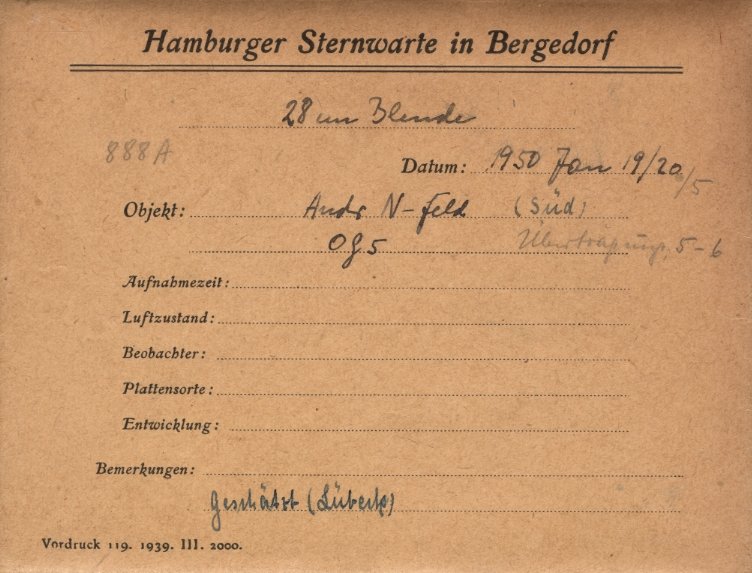 Hamburger Sternwarte in Bergedorf
28 cm Blende
888 A
Datum: 1950 Jan 19/20
Objekt: Andr N-Feld (Süd)
OG5 Übertragung, 5-6
Aufnahmezeit:
Luftzustand:
Beobachter:
Plattensorte:
Entwicklung:
Bemerkungen:
Geschätzt (Lübeck)
Vordruck 119. 1939. III. 2000.